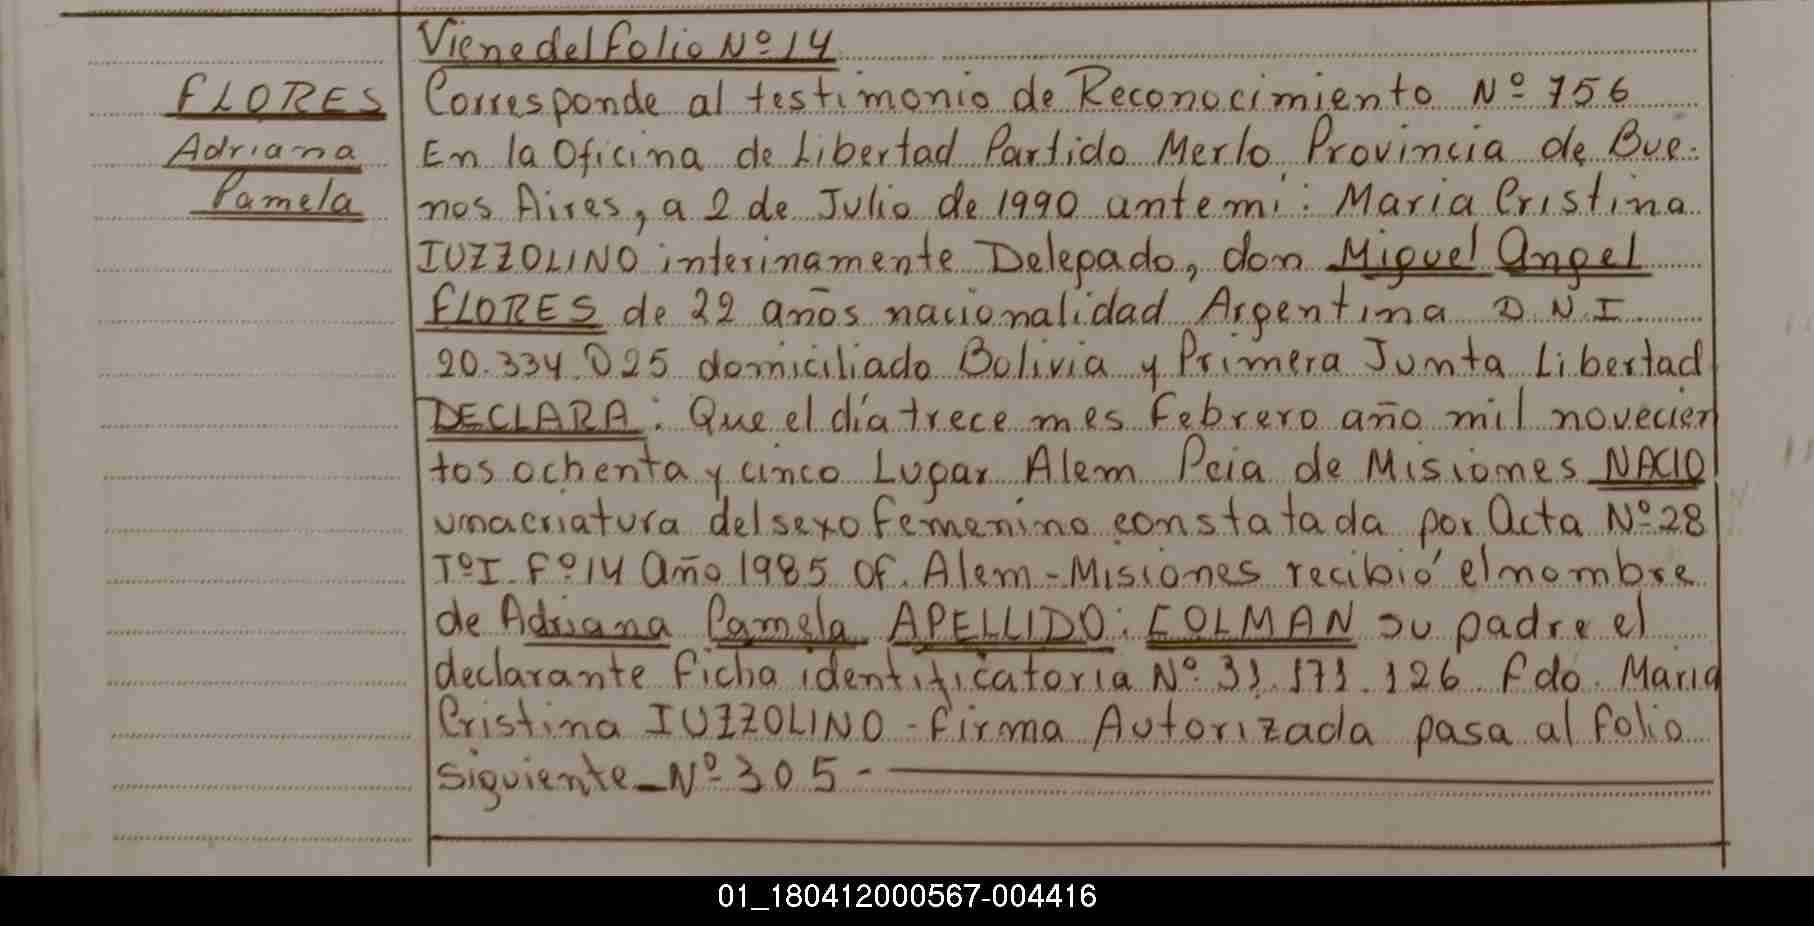 Viene del folio Nº 14
FLORES
Adriana
Pamela
Corresponde al testimonio de Reconocimiento Nº 756
En la Oficina de Libertad Partido Merlo Provincia de Bue-
nos Aires, a 2 de Julio de 1990 ante mí: Maria Cristina
IUZZOLINO interinamente Delegado, don Miguel Angel
FLORES de 22 años nacionalidad Argentina D.N.I.
20.334.025 domiciliado Bolivia y Primera Junta Libertad
DECLARA: Que el día trece mes Febrero año mil novecien
tos ochenta y cinco Lugar Alem Pcia de Misiones NACIO
una criatura del sexo femenino constatada por Acta Nº 28
Tº I. Fº 14 Año 1985 Of. Alem - Misiones recibió el nombre
de Adriana Pamela APELLIDO: COLMAN su padre el
declarante ficha identificatoria Nº 31.171.126 Fdo. Maria
Cristina IUZZOLINO - firma Autorizada pasa al folio
siguiente - Nº 305 -
01_180412000567-004416